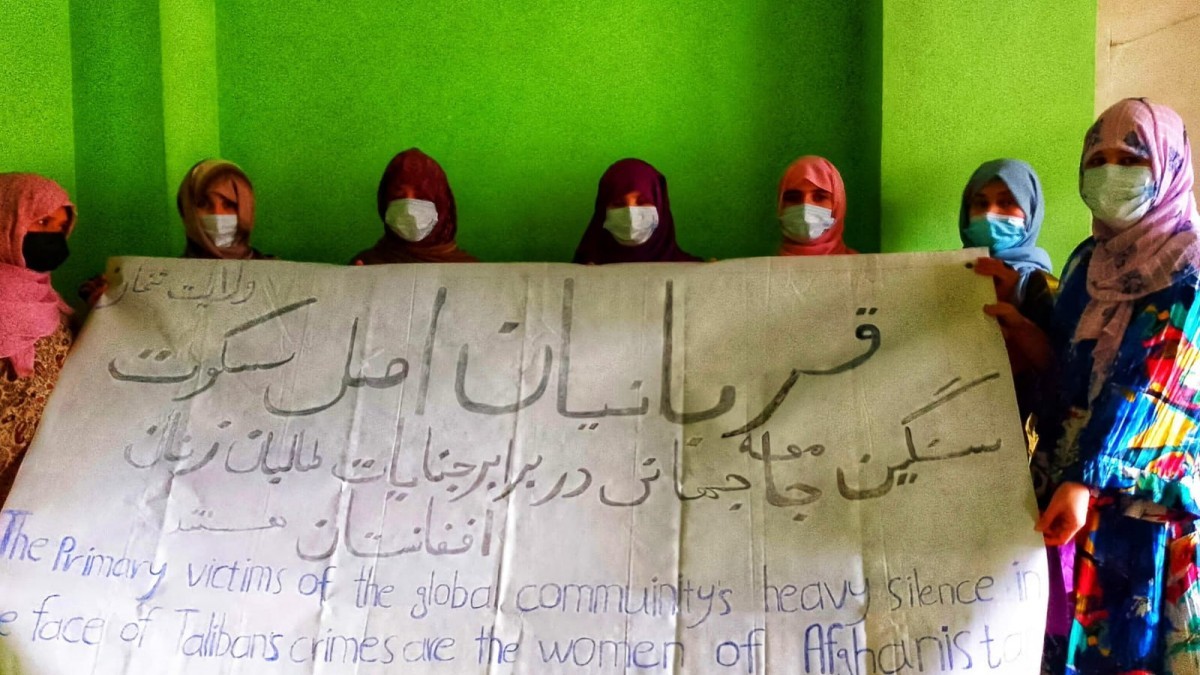 ولایت تخار
قربانیان اصل سکوت
سنگین جامعه جهانی در برابر جنایات طالبان زنان
افغانستان هستند
The Primary victims of the global commuinity's heavy silence in
e face of Talibans crimes are the women of Afghanista